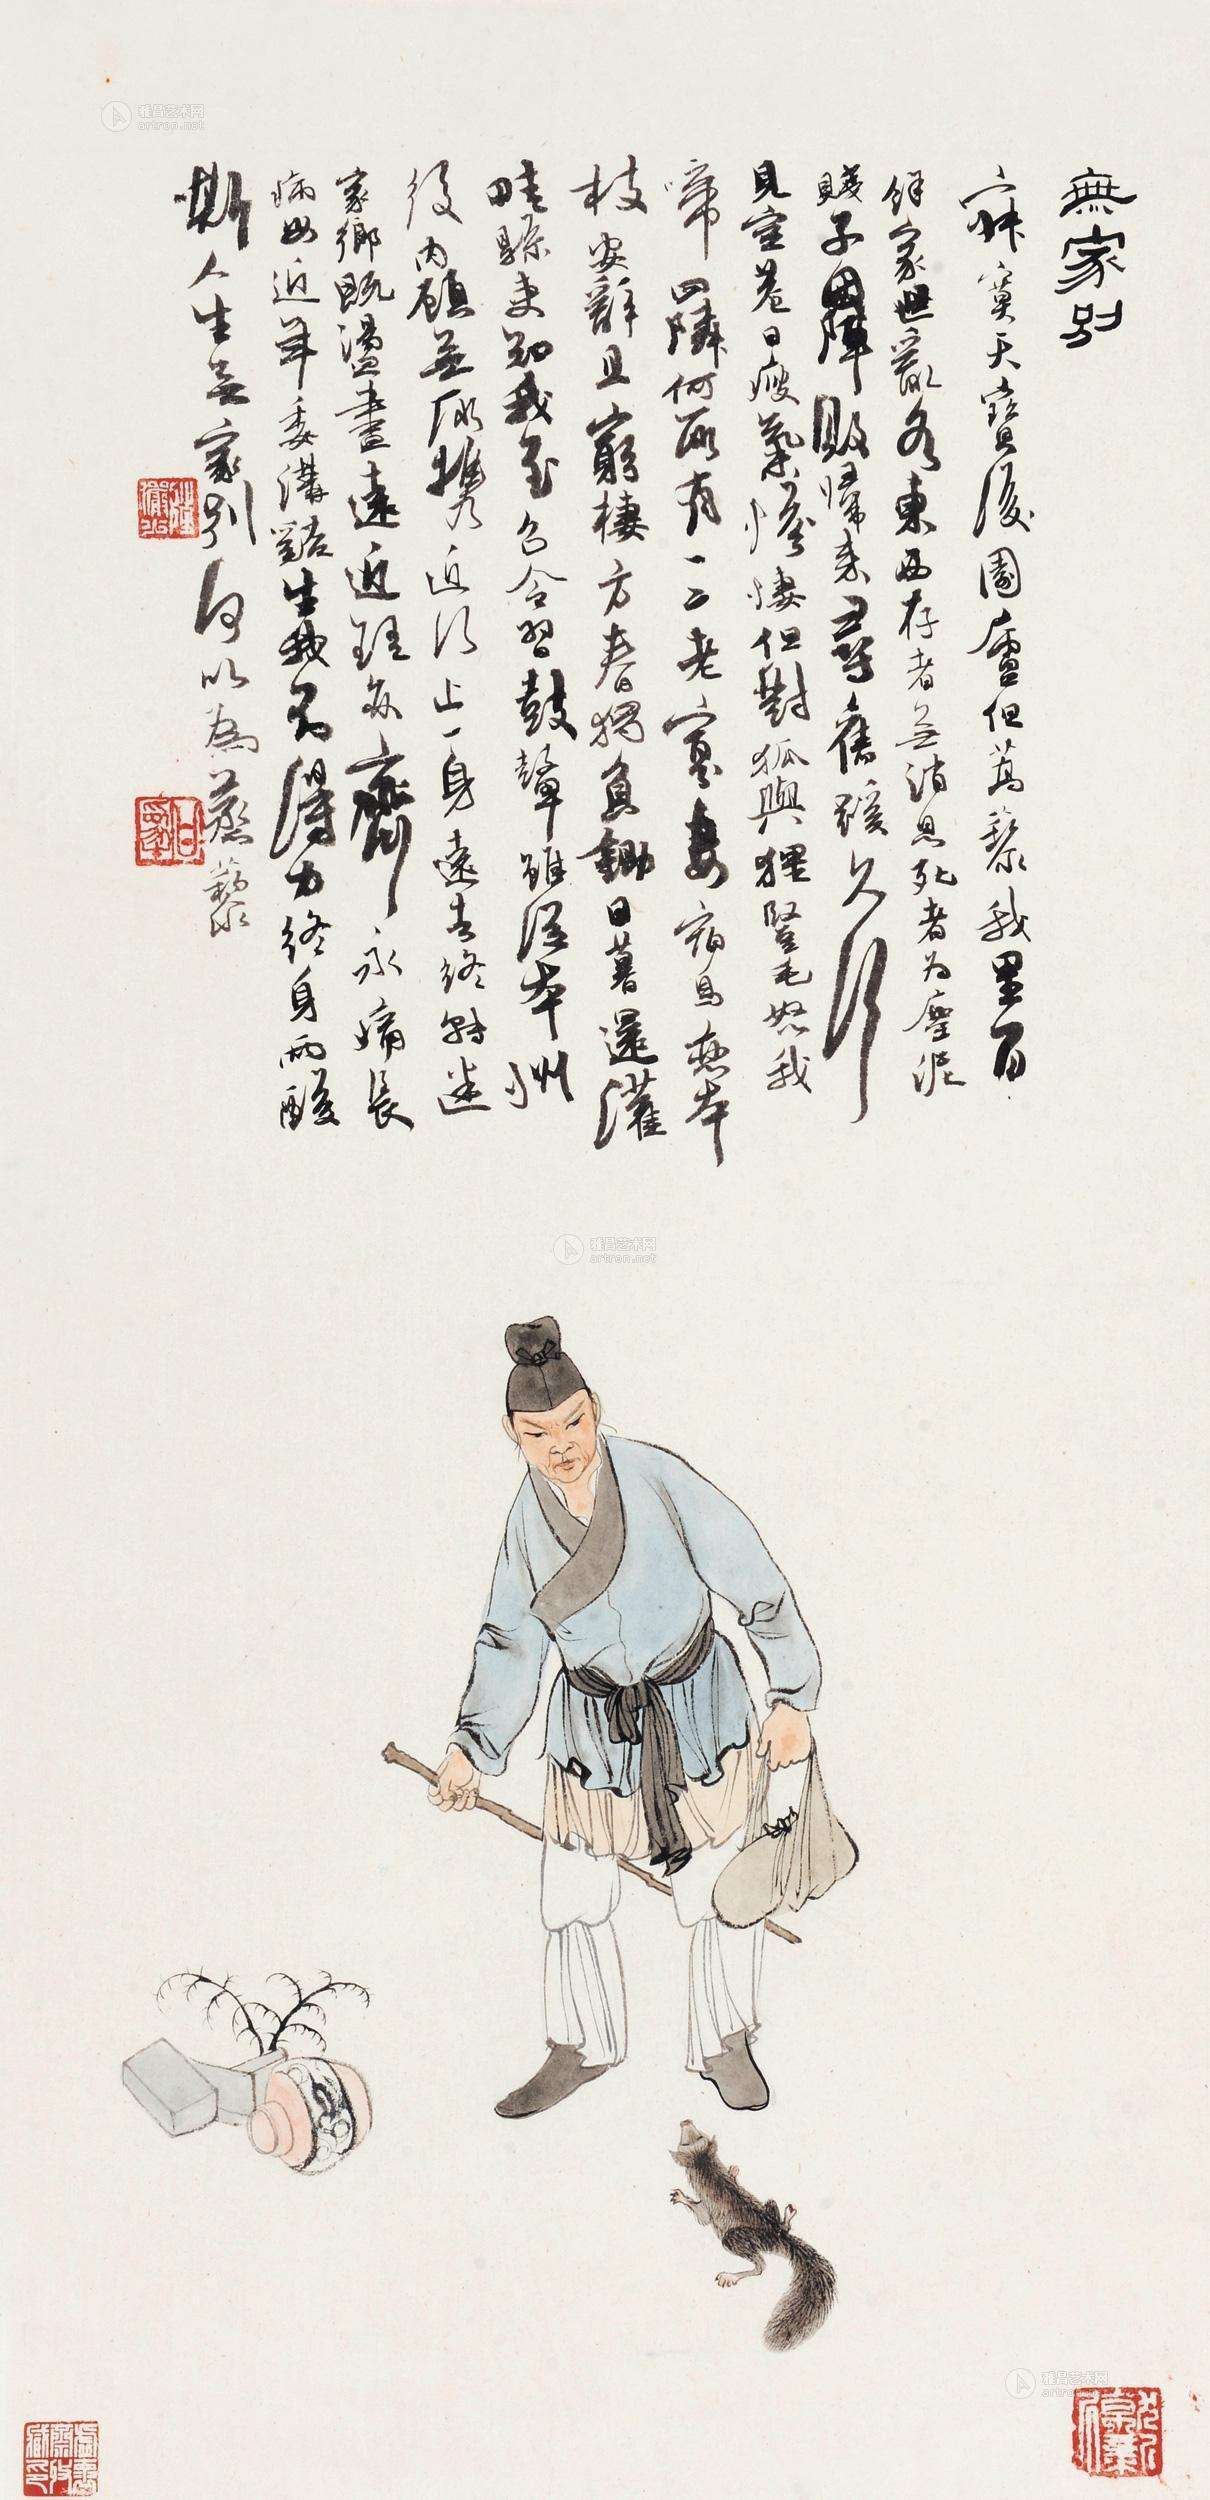 無家別
寂寞天寶後園廬但蒿藜我里百
餘家世亂各東西存者無消息死者為塵泥
賤子因陣敗歸來尋舊蹊久行
見空巷日瘦氣慘悽但對狐與狸豎毛怒我
啼四隣何所有一二老寡妻宿鳥戀本
枝安辭且窮棲方春獨負鋤日暮還灌
畦縣吏知我至召令習鼓鞞雖從本州
役內顧無所攜近行止一身遠去終轉迷
家鄉既盪盡遠近理亦齊永痛長
病母近年委溝谿生我不得力終身兩酸
嘶人生無家別何以為蒸藜
雅昌艺术网
artron.net
雅昌艺术网
artron.net
雅昌艺术网
artron.net